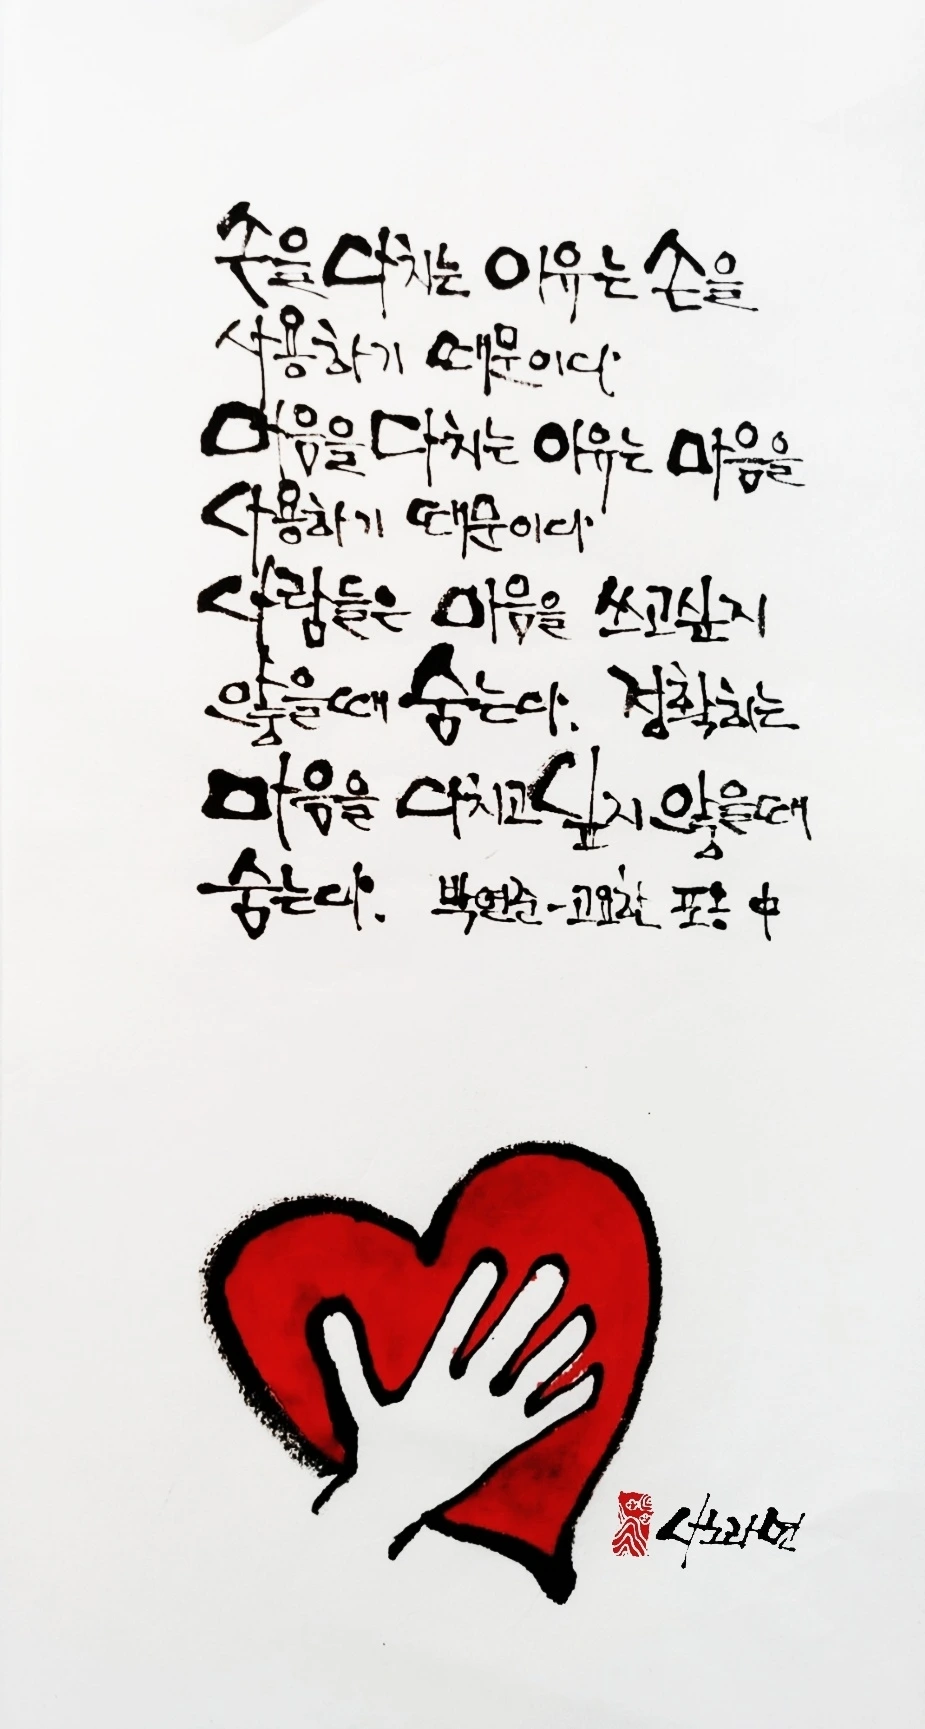 손을 다치는 이유는 손을
사용하기 때문이다
마음을 다치는 이유는 마음을
사용하기 때문이다
사람들은 마음을 쓰고싶지
않을때 숨는다. 정확히는
마음을 다치고싶지 않을때
숨는다. 박연준-고요한 포옹 中